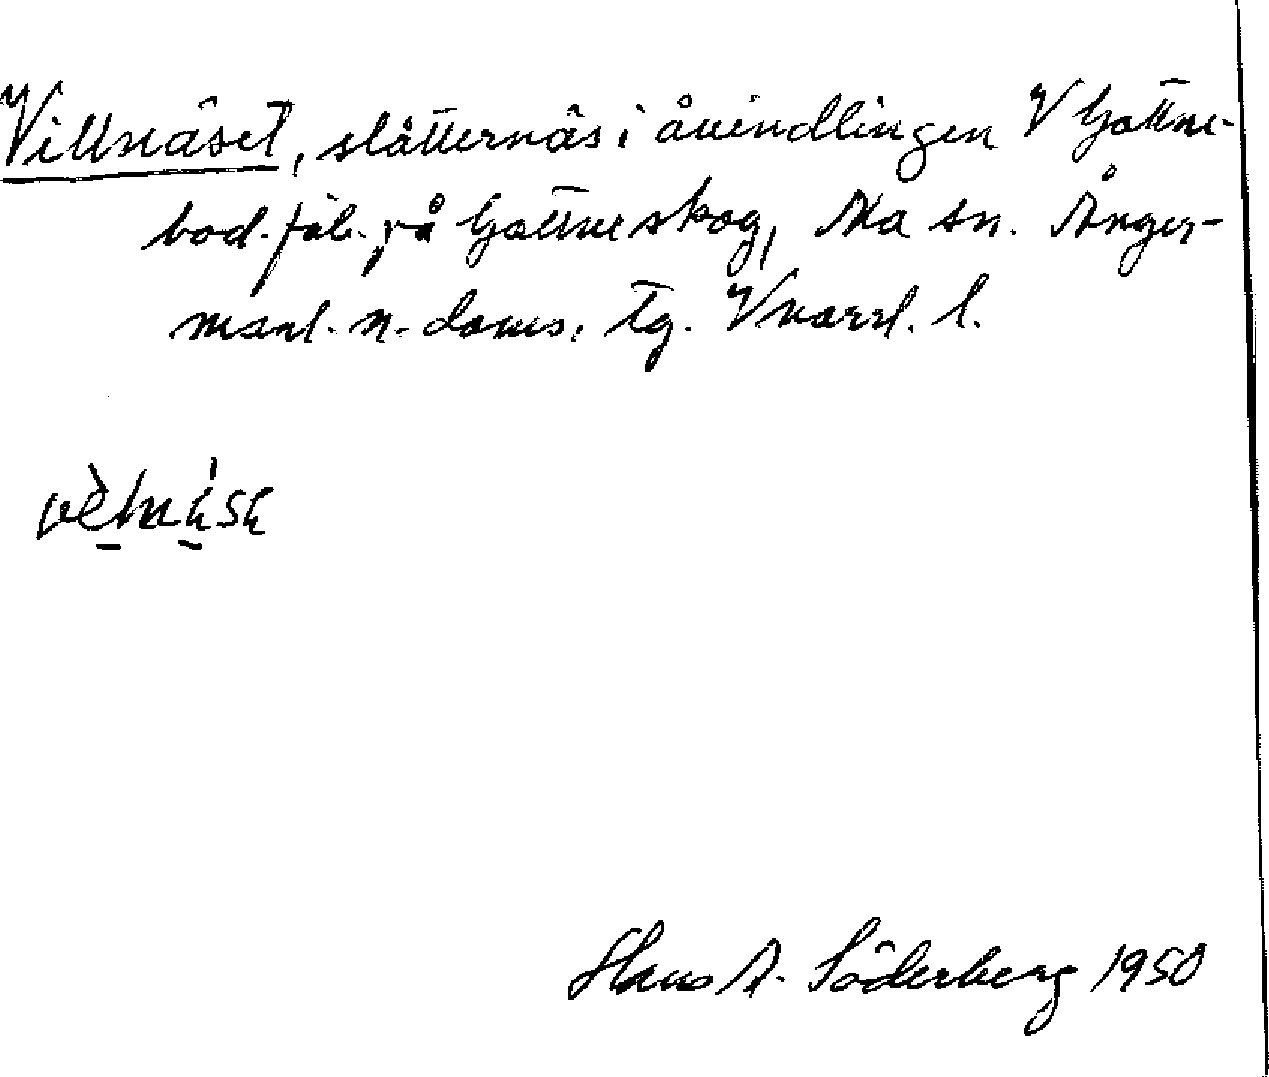 Villnäset, slåtternäs i åvindlingen V Gottne-
bod. fäb. på Gottneskog, Mo sn. Ånger-
manl. n. doms. tg. Vnorrl. l.
Hans A. Söderberg 1950